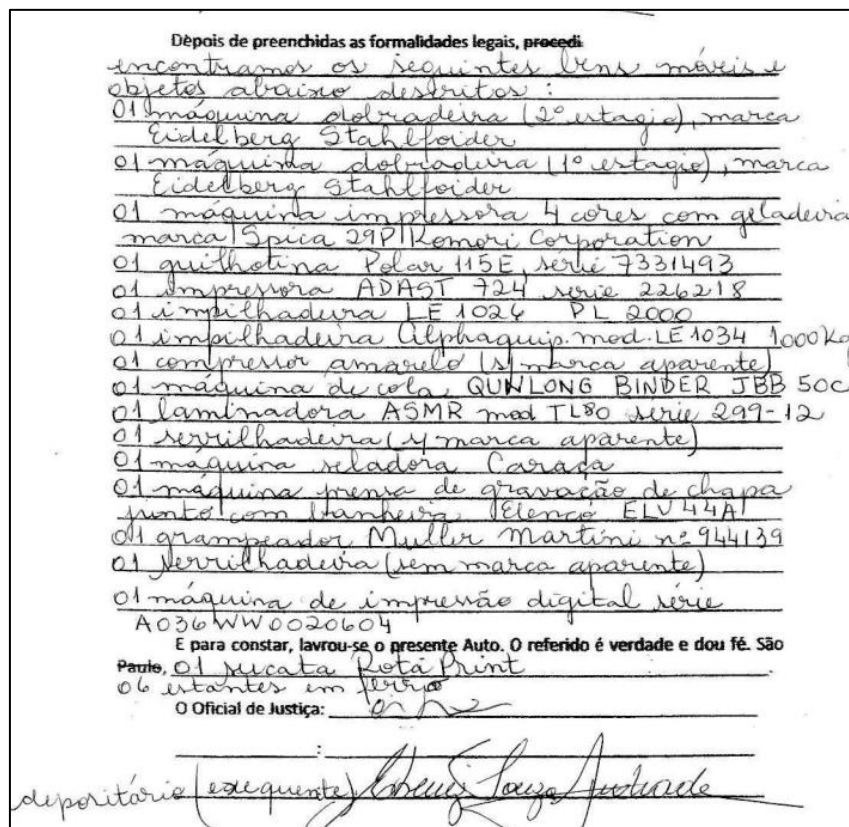 Depois de preenchidas as formalidades legais, procedi
encontramos os seguintes bens móveis e
objetos abaixo destritos :
01 máquina dobradeira (2º estagio), marca
Eidelberg Stahlfoider
01 máquina dobradeira (1º estagio), marca
Eidelberg Stahlfoider
01 máquina impressora 4 cores com geladeira
marca Spica 29P Komori Corporation
01 guilhotina Polar 115E, série 7331493
01 impressora ADAST 724 serie 226218
01 impilhadeira LE 1026 PL 2000
01 impilhadeira Alphaquip. mod. LE 1034 1000 Kg
01 compressor amarelo (s/ marca aparente)
01 máquina de cola QUNLONG BINDER JBB 50C
01 laminadora ASMR mod TL80 serie 299-12
01 serrilhadeira (s/ marca aparente)
01 máquina seladora Caraça
01 máquina prensa de gravação de chapa
junto com banheira Elenco ELV44A
01 grampeador Muller Martini nº 944139
01 serrilhadeira (sem marca aparente)
01 máquina de impressão digital série
A036WW0020604
E para constar, lavrou-se o presente Auto. O referido é verdade e dou fé. São
Paulo, 01 sucata Rota Print
06 estantes em ferro
O Oficial de Justiça:
:
depositário (exequente) Souza Andrade